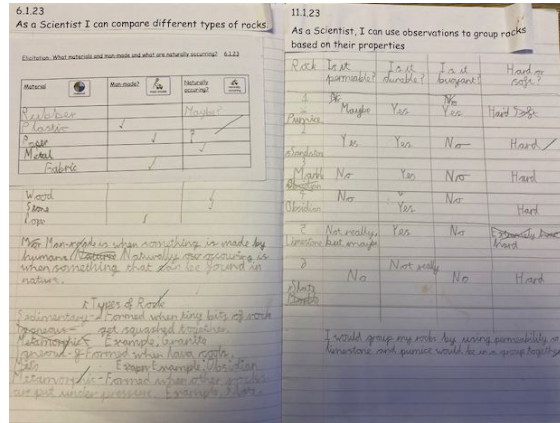 6.1.23
As a Scientist I can compare different types of rocks
Elicitation: What materials and man-made and what are naturally occuring? 6.1.23
Material Man made? Naturally occuring?
Rubber Maybe
Plastic ✓
Paper ?
Metal ✓
Fabric ✓
Wood ✓
Stone ✓
Rope
Man-made is when something is made by
humans Naturally occuring is
when something that can be found in
nature.
Types of Rock
Sedimentary - Formed when tiny bits of rock
get squashed together.
Example,
Igneous - Formed when lava cools.
Example, Obsidian
Metamorphic - Formed when other rocks
are put under pressure. Example,
11.1.23
As a Scientist, I can use observations to group rocks
based on their properties
Rock Is it permeable? Is it durable? Is it buoyant? Hard or soft?
1 Pumice No Maybe Yes No Yes Hard Soft
2 Yes Yes No Hard
Marble No Yes No Hard
Obsidian No Yes No Hard
Limestone Not really, but maybe Yes No hard
No Not really No Hard
I would group my rocks by using permeability, so
limestone and pumice would be in a group together